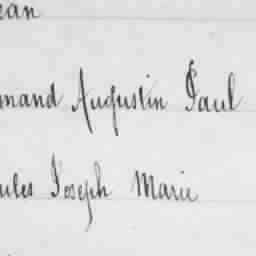 ean
mand Augustin Paul
ules Joseph Marie